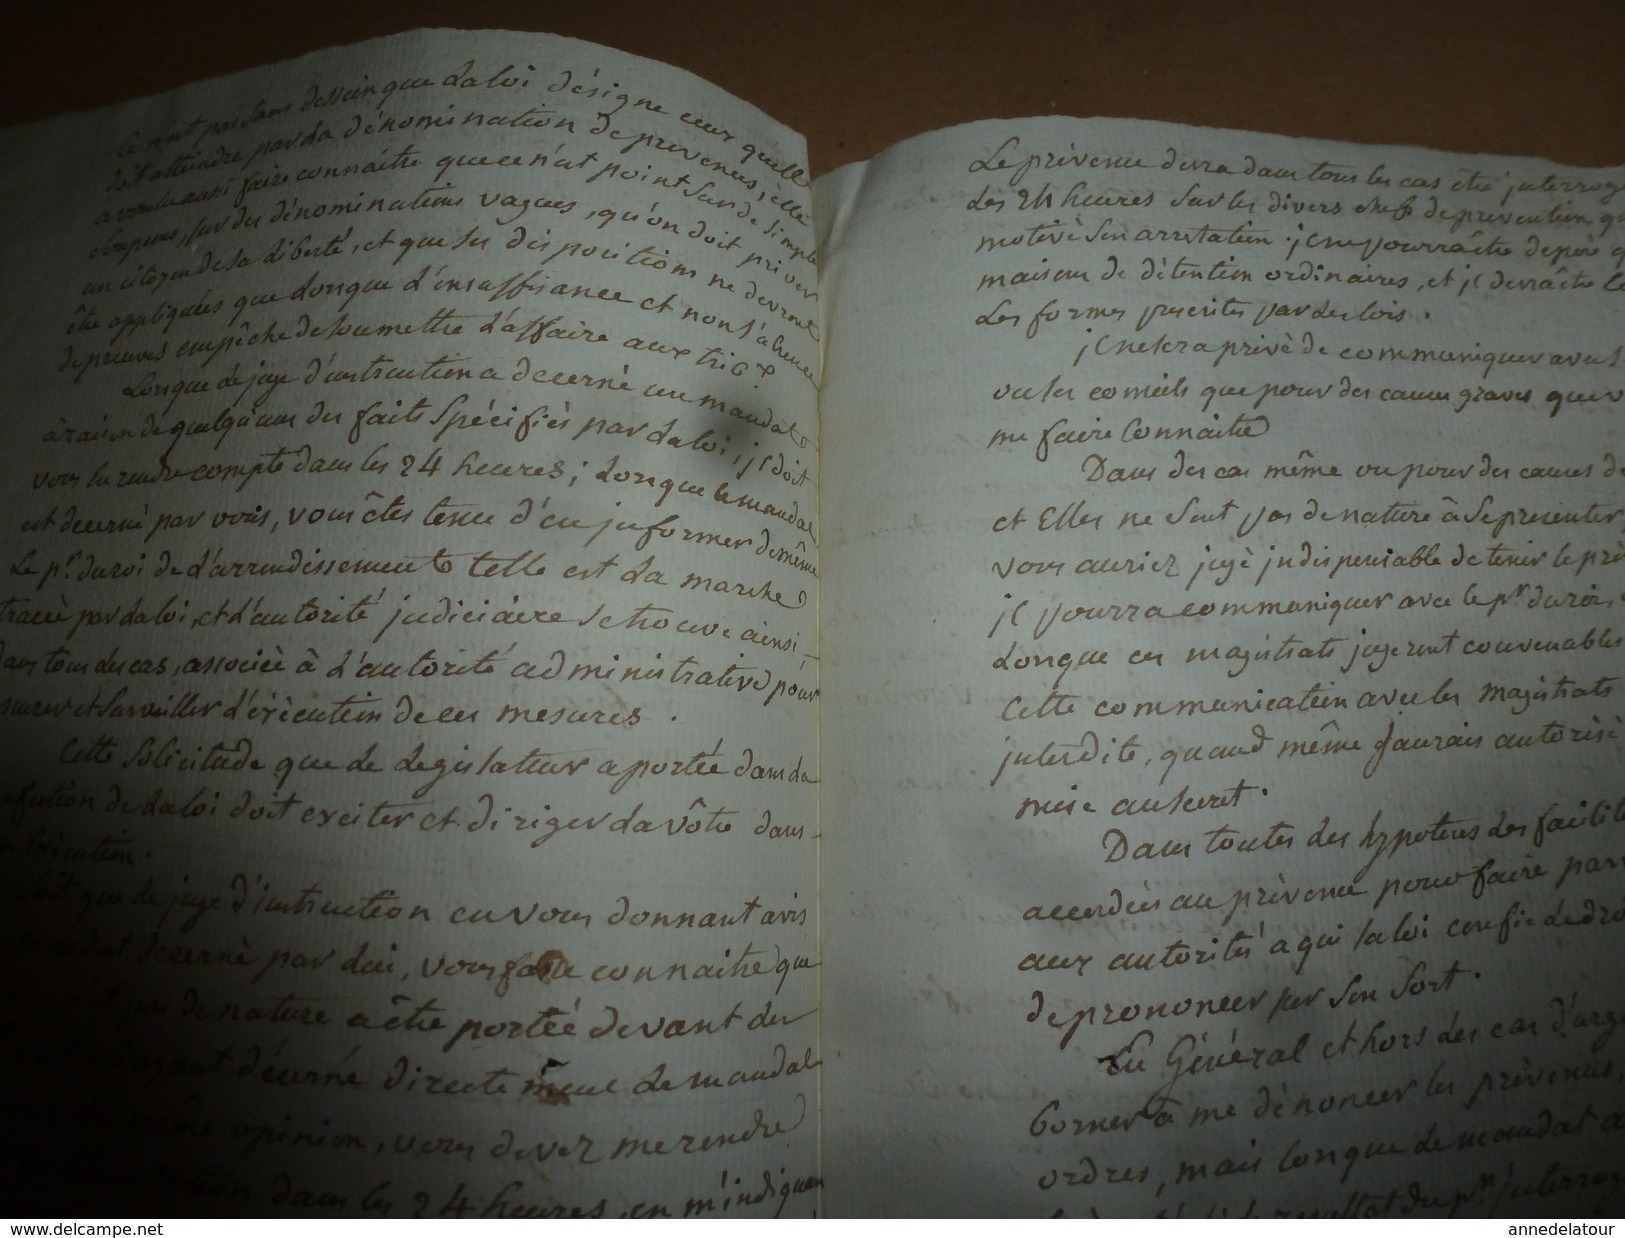 Ce n'est pas sans dessein que la loi désigne ceux qu'elle
doit atteindre par la dénomination de prevenus, elle
a voulu aussi faire connaitre que ce n'est point sur de simples
soupçons, sur des dénominations vagues, qu'on doit priver
un citoyen de sa liberté, et que ses dispositions ne devront
être appliquées que lorsque l'insuffisance et non l'absence
de preuves empêche de soumettre l'affaire aux tribx
Lorsque le juge d'instruction a decerné un mandat
à raison de quelqu'uns des faits spécifiés par la loi, il doit
vous en rendre compte dans les 24 heures; lorsque le mandat
est decerné par vous, vous êtes tenu d'en informer de même
Le pr. du roi de l'arrondissement telle est la marche
tracée par la loi, et l'autorité judiciaire se trouve ainsi
dans tous les cas, associée à l'autorité administrative pour
et surveiller l'éxécution de ces mesures.
Cette solicitude que le legislateur a portée dans la
de la loi doit exciter et diriger la vôtre dans
éxécution.
Soit que le juge d'instruction en vous donnant avis
decerné par lui, vous fasse connaitre que
pas de nature a être portée devant les
ayant décerné directement le mandat
même opinion, vous devez me rendre
dans les 24 heures, en m'indiquant
Le prévenu devra dans tous les cas être interrogé
les 24 heures sur les divers chefs de prevention qu
motivé son arrestation. il ne pourra être deposé q
maisons de détention ordinaires, et il devra être
Les formes prescrites par les lois.
il ne sera privé de communiquer avec
ou ses conseils que pour des causes graves que v
me faire connaitre
Dans des cas même ou pour des causes de
et Elles ne sont pas de nature à se presenter
vous auriez jugé indispensable de tenir le pré
il pourra communiquer avec le pr du roi,
Lorsque ces magistrats jugeront convenables
Cette communication avec les magistrats
interdite, quand même j'aurais autorisé
mise au secret.
Dans toutes les hypoteses les facilité
accordées au prévenu pour faire parv
aux autorités a qui la loi confie le dro
de prononcer sur son sort.
En Général et hors les cas d'urge
borner à me dénoncer les prévenus,
ordres, mais lorsque le mandat a
resultat du pr interrog
www.delcampe.net
annedelatour